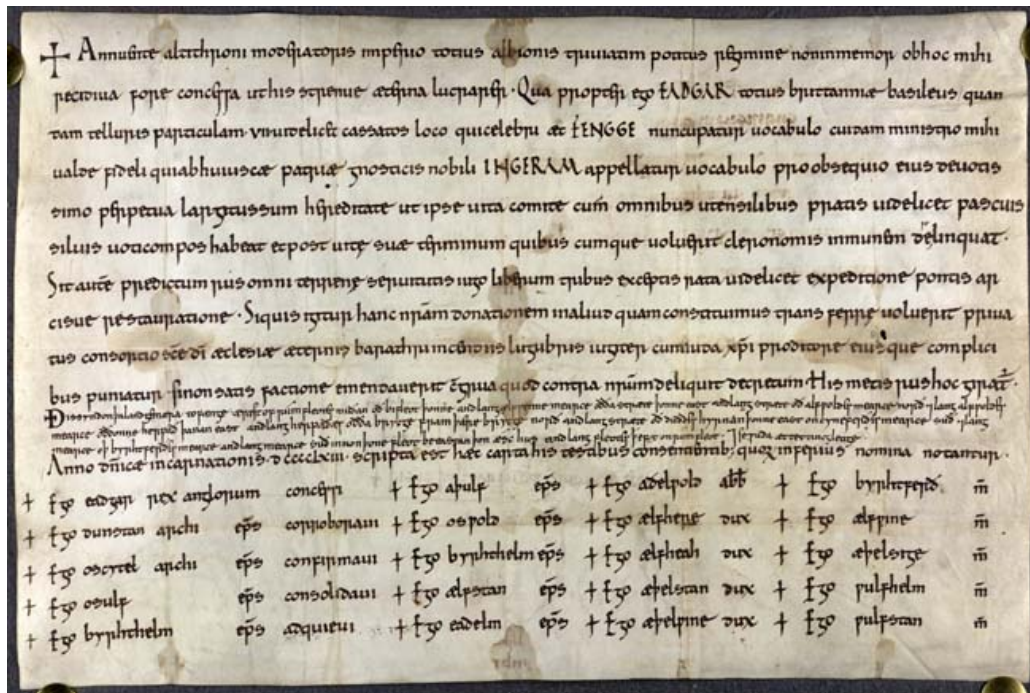 ✝ Annuente altithroni moderatoris imperio totius albionis triuiatim potitus regimine non inmemor ob hoc mihi
recidiua fore concessa ut his strenue æthrina lucrarer · Qua propter ego EADGAR totius bruttanniæ basileus quan
dam telluris particulam · videlicet cassatos loco qui celebri æt TENGGE nuncupatur uocabulo cuidam ministro mihi
ualde fideli qui ab huiuscæ patriæ gnosticis nobili INGERAM appellatur uocabulo pro obsequio eius deuotis
simo perpetua largitus sum hereditate ut ipse uita comite cum omnibus utensilibus pratis uidelicet pascuis
siluis uoti compos habeat et post uitę suæ terminum quibus cumque uoluerit cleronomis inmunem derelinquat ·
Sit autē predictum rus omni terrenę seruitutis iugo liberum tribus exceptis rata uidelicet expeditione pontis ar
cisue restauratione · Siquis igitur hanc nr̄am donationem in aliud quam constituimus transferre uoluerit priua
tus consortio sc̄e dī æclesiæ æternis barathri incendiis lugubris iugiter cum iuda xp̄i proditore eiusque complici
bus puniatur · si non satis factione emendauerit congrua quod contra nr̄um deliquit decretum · His metis rus hoc giratur ·
Anno dn̄icæ incarnationis · dcccclxiii · scripta est hæc carta his testibus consentientibus quorum inferius nomina notantur ·
+ Ego eadgar rex anglorum concessi + Ego aþulf ep̄s + Ego aðelƿold abb̄ + Ego byrhtferð m̄
+ Ego dunstan archi ep̄s corroboraui + Ego osƿold ep̄s + Ego ælfhere dux + Ego ælfƿine m̄
+ Ego oscytel archi ep̄s confirmaui + Ego byrhthelm ep̄s + Ego ælfheah dux + Ego æþelsige m̄
+ Ego osulf ep̄s consolidaui + Ego ælfstan ep̄s + Ego æþelstan dux + Ego ƿulfhelm m̄
+ Ego byrhthelm ep̄s adquieui + Ego eadelm ep̄s + Ego æþelƿine dux + Ego ƿulfstan m̄